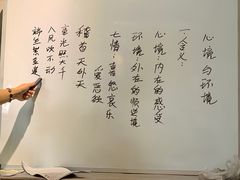 心境与环境
一、含义:
心境:内在的感受
环境:外在的顺逆境
七情:喜怒哀乐
爱恶欲
稽首天外天
毫光照大千
八风吹不动
端坐紫金莲